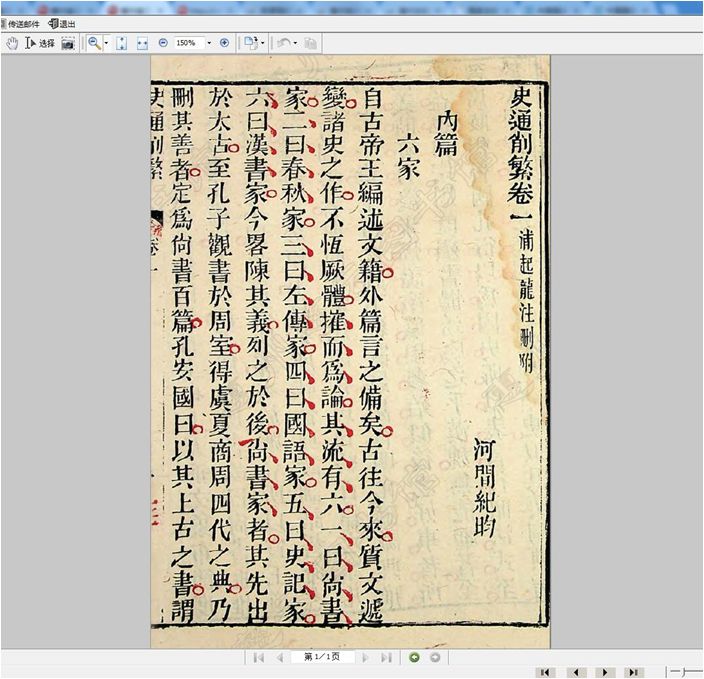 传送邮件 退出
选择 150%
史通削繁卷一 浦起龍注刪附
河間紀昀
內篇
六家
自古帝王編述文籍外篇言之備矣古往今來質文遞
變諸史之作不恆厥體搉而爲論其流有六一曰尙書
家二曰春秋家三曰左傳家四曰國語家五曰史記家
六曰漢書家今畧陳其義列之於後尙書家者其先出
於太古至孔子觀書於周室得虞夏商周四代之典乃
刪其善者定爲尙書百篇孔安國曰以其上古之書謂
史通削繁 卷一
第1/1页